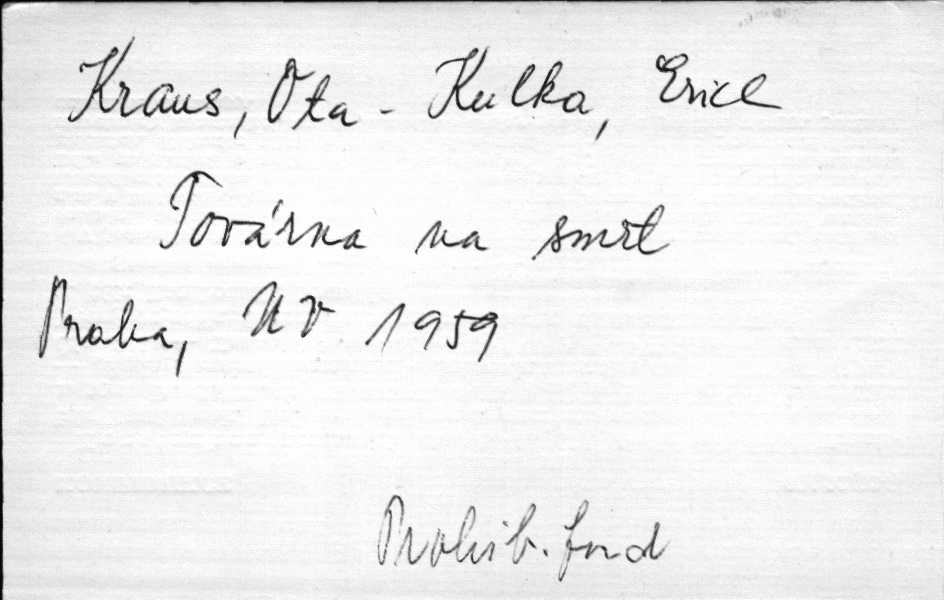 Kraus, Ota - Kulka, Erich
Továrna na smrt
Praha, NV 1959
Prohib. fond